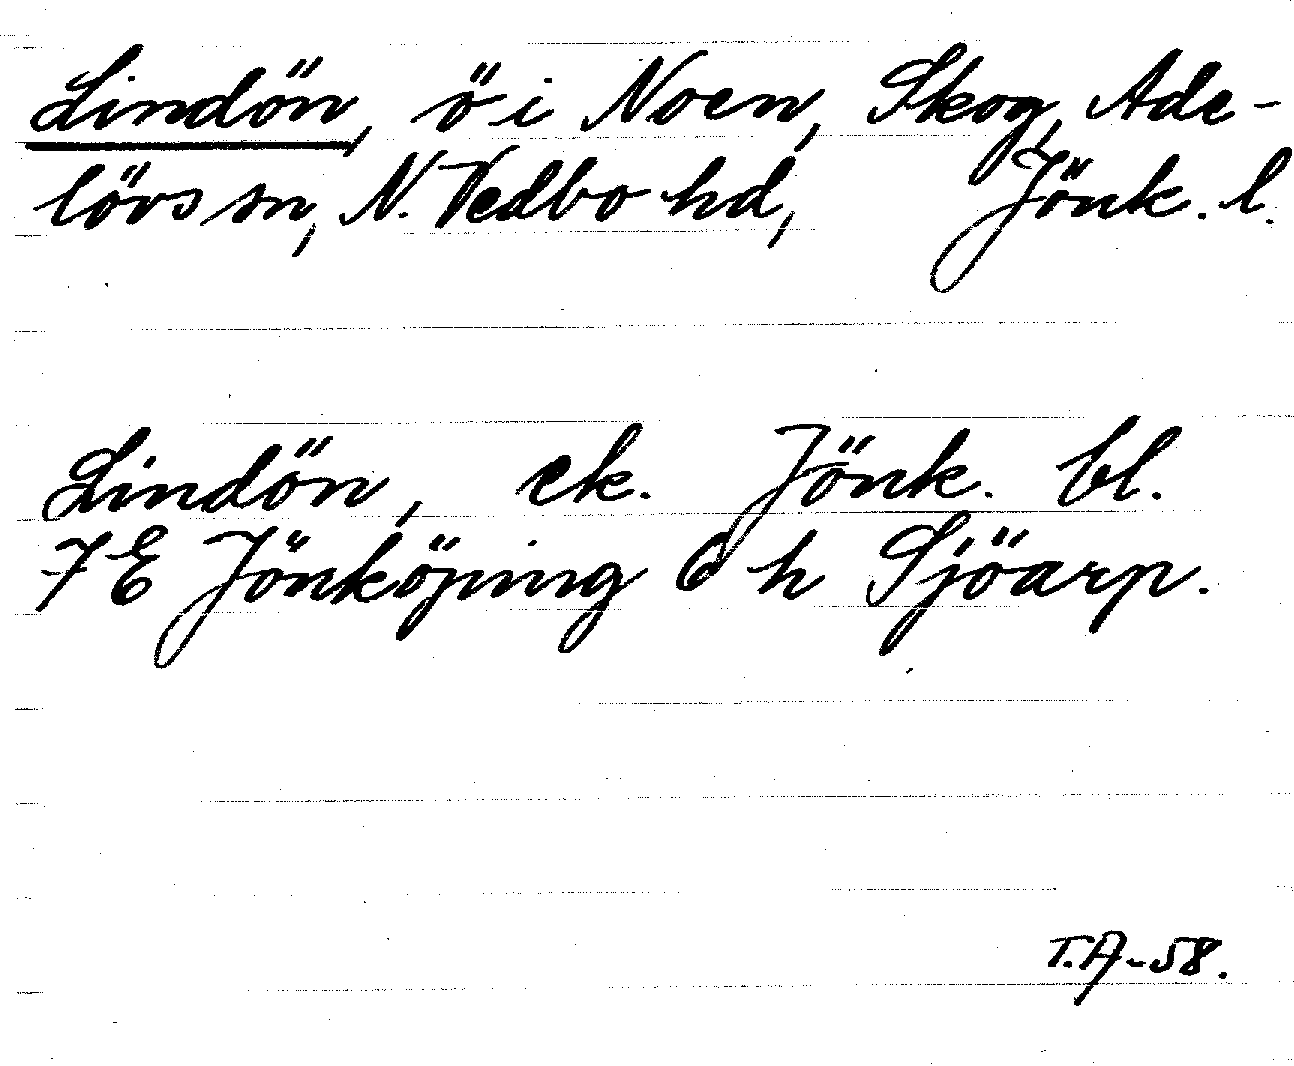 Lindön, ö i Noen, Skog, Ade-
lövs sn, N. Vedbo hd, Jönk. l.
Lindön, ek. Jönk. bl.
7E Jönköping 6 h Sjöarp.
T.A-58.